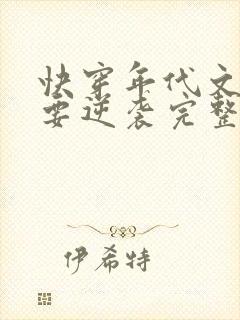 快穿年代文
要逆袭完整
伊希特